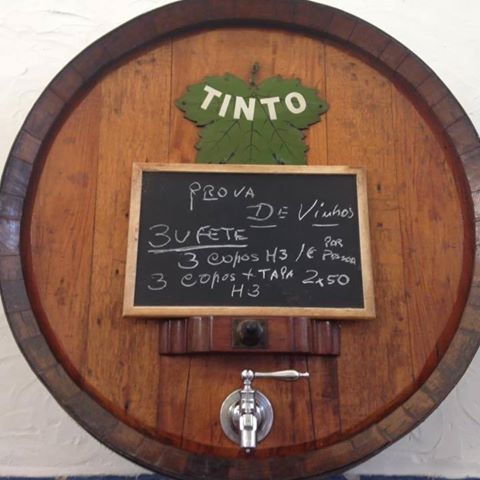 TINTO
PROVA
DE Vinhos
3UFETE
3 COPOS H3 1€ POR PESSOA
3 COPOS + TAPA 2x50
H3